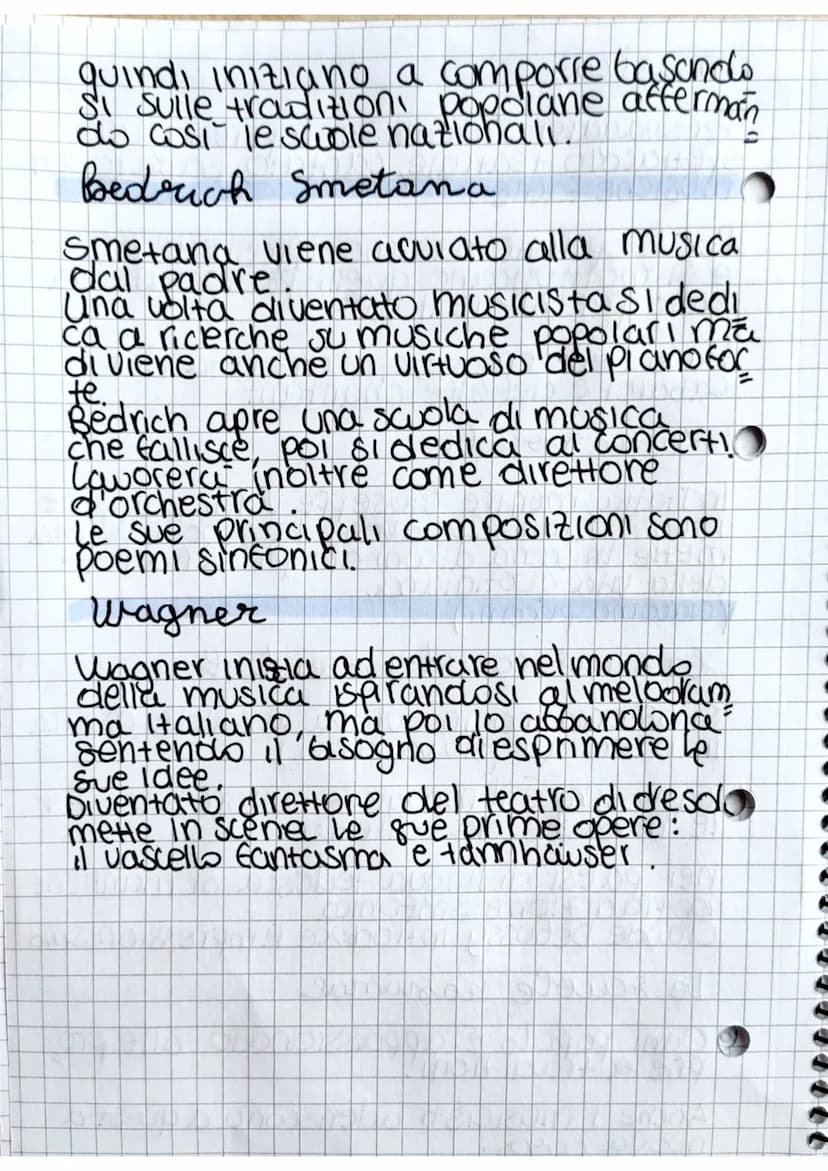 quindi iniziano a comporre basando
si sulle tradizioni popolane afferman
do così le scuole nazionali.
Bedrich Smetana
Smetana viene avviato alla musica
dal padre.
Una volta diventato musicista si dedi
ca a ricerche su musiche popolari ma
diviene anche un virtuoso del pianofor
te.
Bedrich apre una scuola di musica
che fallisce, poi si dedica ai concerti.
Lavorerà inoltre come direttore
d'orchestra.
Le sue principali composizioni sono
poemi sinfonici.
Wagner
Wagner inizia ad entrare nel mondo
della musica ispirandosi al melodram
ma italiano, ma poi lo abbandona
sentendo il bisogno di esprimere le
sue idee.
Diventato direttore del teatro di dresda
mette in scena le sue prime opere:
il vascello fantasma e tannhäuser.